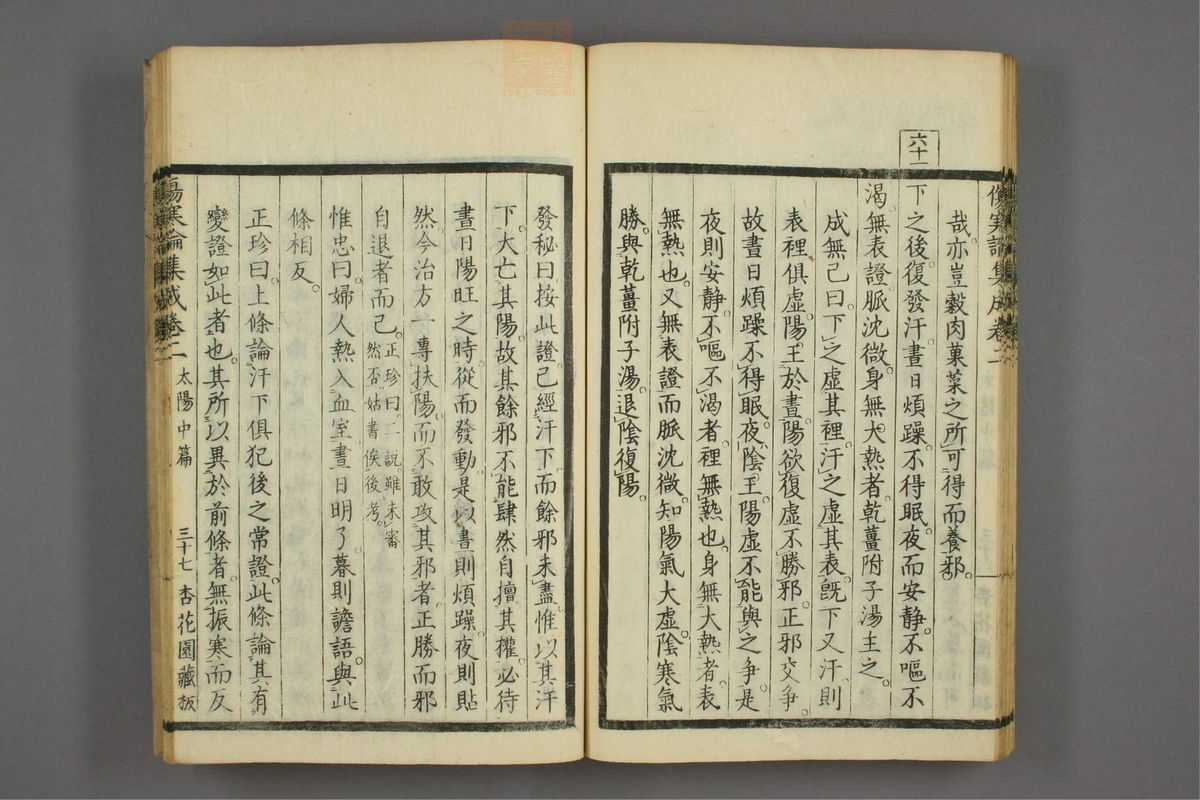 六十一
傷寒論集成卷二
哉。亦豈穀肉菓菜之所可得而養邪。
下之後。復發汗。晝日煩躁。不得眠。夜而安静。不嘔不
渴。無表證。脈沈微。身無大熱者。乾薑附子湯主之。
成無已曰。下之虛其裡。汗之虛其表。既下又汗。則
表裡俱虛。陽王於晝。陽欲復虛不勝邪。正邪交爭。
故晝日煩躁不得眠。夜陰王。陽虛不能與之爭。是
夜則安静。不嘔不渴者。裡無熱也。身無大熱者。表
無熱也。又無表證而脈沈微。知陽氣大虛。陰寒氣
勝。與乾薑附子湯。退陰復陽。
發秘曰按此證已經汗下。而餘邪未盡。惟以其汗
下。大亡其陽。故其餘邪不能肆然自擅其權。必待
晝日陽旺之時。從而發動。是以晝則煩躁。夜則貼
然。今治方一專扶陽。而不敢攻其邪者。正勝而邪
自退者而已。正珍曰。二說雖未審
然否。姑書俟後考。
惟忠曰。婦人熱入血室。晝日明了。暮則譫語。與此
條相反。
正珍曰。上條論汗下俱犯後之常證。此條論其有
變證如此者也。其所以異於前條者。無振寒而反
傷寒論集成卷二 太陽中篇 三十七 杏花園藏板